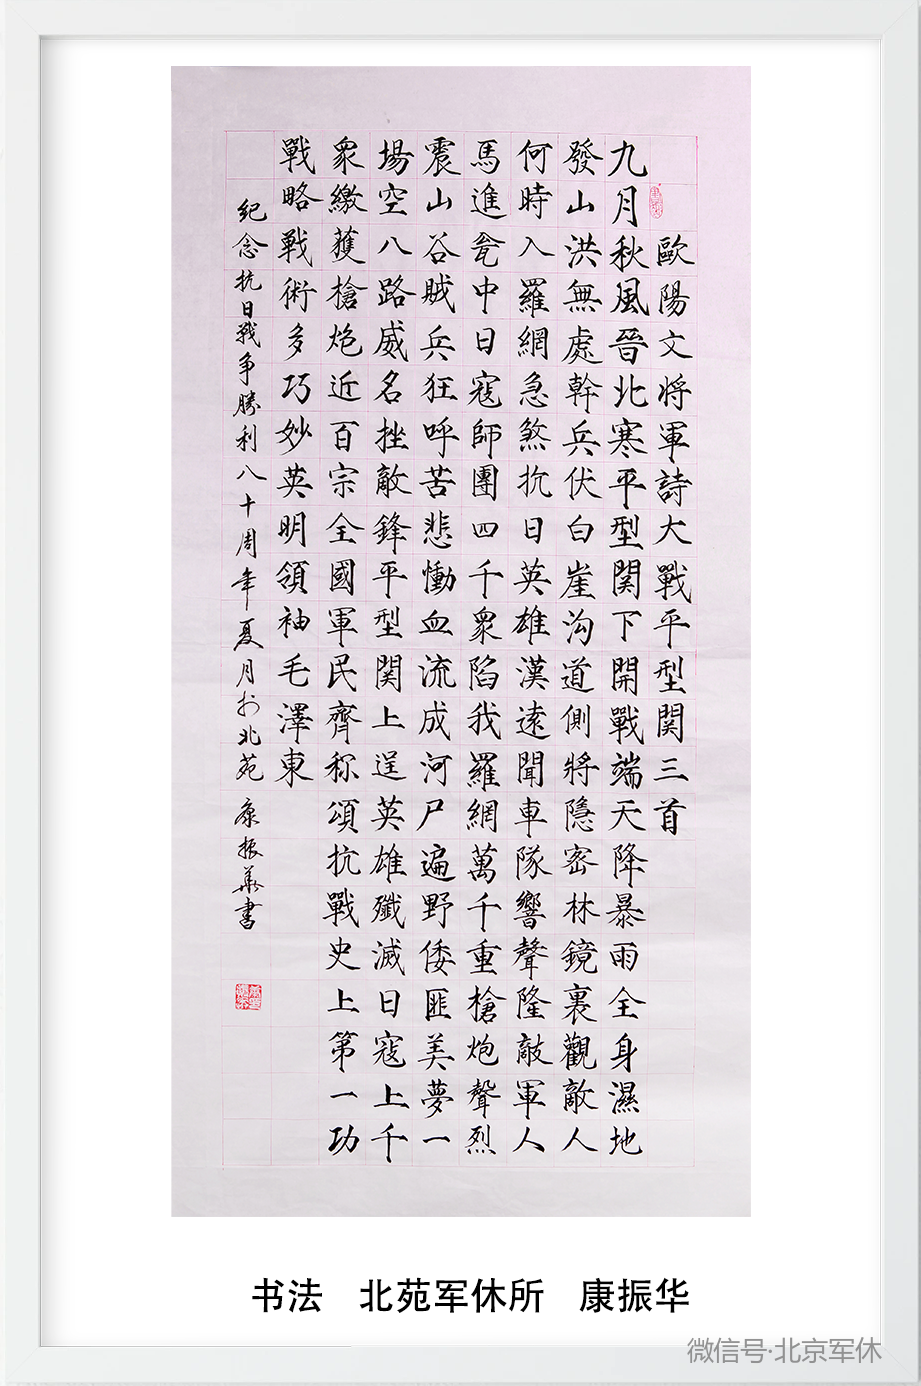 歐陽文将軍詩大戰平型関三首
九月秋風晉北寒平型関下開戰端天降暴雨全身濕地
發山洪無處幹兵伏白崖沟道側将隱密林鏡裏觀敵人
何時入羅網急煞抗日英雄漢遠聞車隊響聲隆敵軍人
馬進瓮中日寇師團四千衆陷我羅網萬千重槍炮聲烈
震山谷賊兵狂呼苦悲慟血流成河尸遍野倭匪美夢一
場空八路威名挫敵鋒平型関上逞英雄殲滅日寇上千
衆繳獲槍炮近百宗全國軍民齊称頌抗戰史上第一功
戰略戰術多巧妙英明領袖毛澤東
紀念抗日戰争勝利八十周年夏月於北苑 康振華書
书法 北苑军休所 康振华
微信号·北京军休